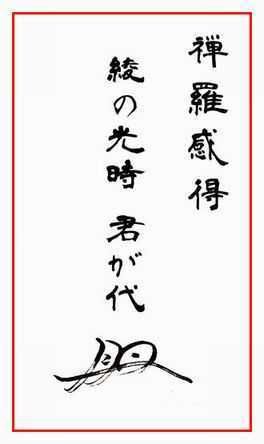 禅羅感得
綾の光時 君が代